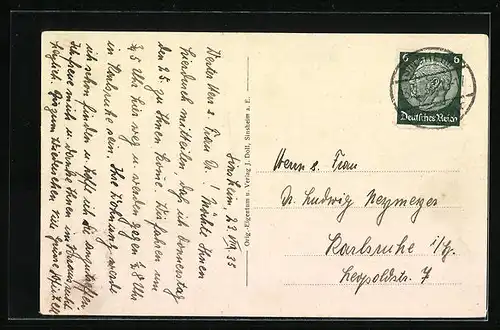 Sinsheim 22. VIII 35
Werter Herr u. Frau Dr.! Möchte Ihnen
hierdurch mitteilen, daß ich Donnerstag
den 25. zu Ihnen komme. Wir fahren um
Uhr hier weg u. werden gegen Uhr
in Karlsruhe sein. Ihre Wohnung werde
ich schon finden u. hoffe ich Sie anzutreffen.
Ich freue mich u. danke Ihnen im Voraus recht
herzlich.
Orig.-Eigentum u. Verlag J. Doll, Sinsheim a. E.
6 6
Deutsches Reich
Herrn u. Frau
Dr. Ludwig Neymeyer
Karlsruhe i/B.
Leopoldstr. 7